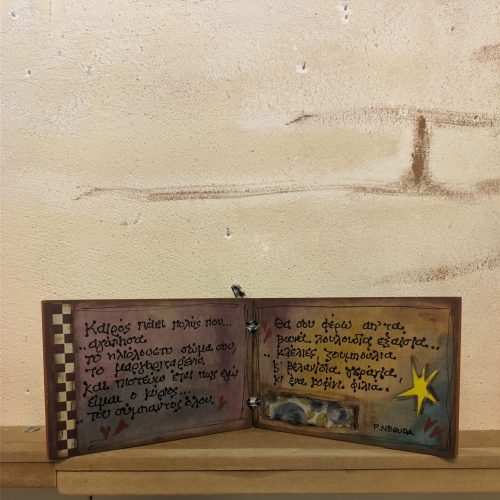 Καιρός πάει πολύς που...
..αγάπησα
το ηλιόλουστο σώμα σου,
το μαργαριταρένιο,
και πιστεύω έτσι πως εγώ
είμαι ο κύριος...
..του σύμπαντος όλου.
Θα σου φέρω απ' τα
βουνά λουλούδια εξαίσια..
..κλέλιες, ζουμπούλια
κ' βελανίδια γεράνια,
κι ένα κοφίνι φιλιά..
P. NERUDA